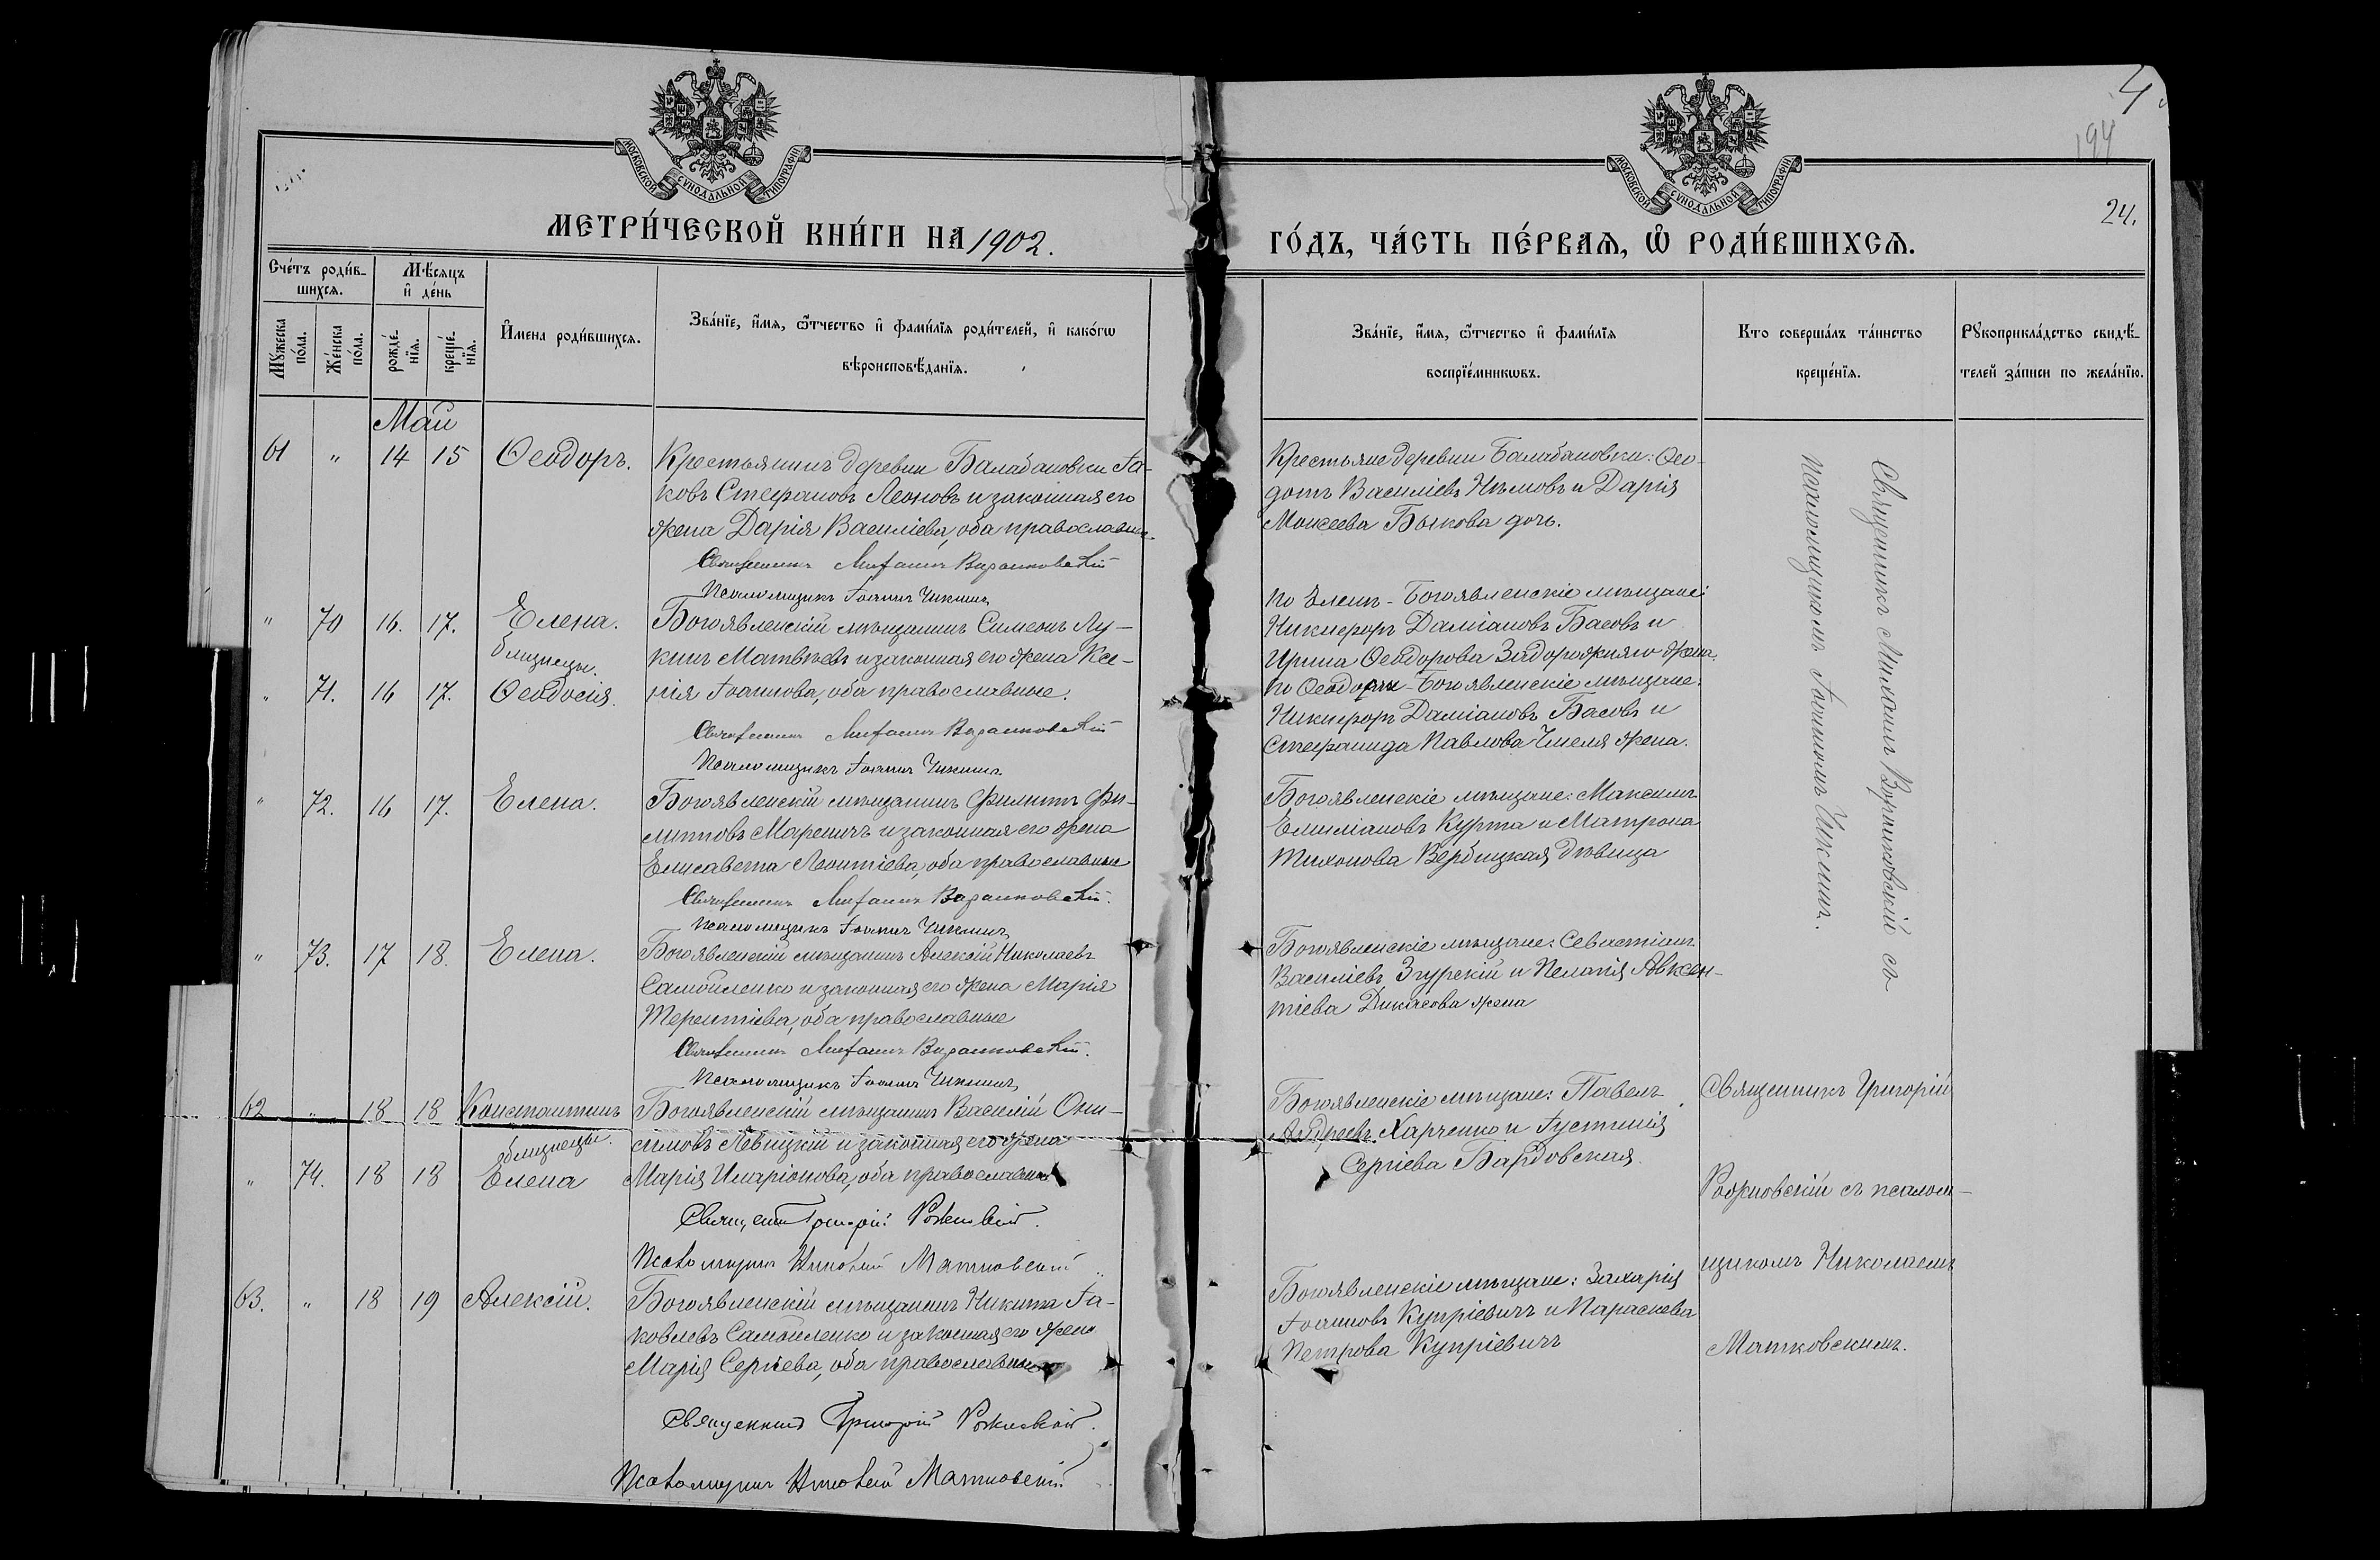 4
194
24.
МОСКОВСКОЙ СѴНОДАЛЬНОЙ ТИПОГРАФІИ
МОСКОВСКОЙ СѴНОДАЛЬНОЙ ТИПОГРАФІИ
МЕТРИ́ЧЕСКОЙ КНИ́ГИ НА 1902.
ГО́ДЪ, ЧА́СТЬ ПЕ́РВАѦ, Ѽ РОДИ́ВШИХСѦ.
Сче́тъ роди́в-
шихсѧ.
Мѣ́сѧцъ
и҆ де́нь
Мꙋ́жеска по́ла.
Же́нска по́ла.
рожде́-нїѧ.
креще́-нїѧ.
И҆мена роди́вшихсѧ.
Зва́нїе, и҆́мѧ, ѻ҆́тчество и҆ фами́лїѧ роди́телей, и҆ како́гѡ
вѣроисповѣ́данїѧ.
Зва́нїе, и҆́мѧ, ѻ҆́тчество и҆ фами́лїѧ
воспрїе́мникѡвъ.
Кто соверша́лъ та́инство
креще́нїѧ.
Рꙋкоприкла́дство свидѣ́-
телей за́писи по жела́нїю.
Май
61 " 14 15 Ѳеодоръ.
Крестьянинъ деревни Балабановки Іа-
ковъ Стефановъ Леоновъ и законная его
жена Дарія Василіева, оба православны.
Священникъ Михаилъ Варшковскій
Псаломщикъ Іоаннъ Чикминъ
Крестьяне деревни Балабановки: Ѳео-
дотъ Василіевъ Нѣмовъ и Дарія
Моисеева Быкова дочь.
Священникъ Михаилъ Варшковскій съ
псаломщикомъ Іоанномъ Чикминъ.
" 70 16. 17. Елена.
близнецы.
" 71. 16 17. Ѳеодосія.
Богоявленскій мѣщанинъ Симеонъ Лу-
кинъ Матвѣевъ и законная его жена Ксе-
нія Іоаннова, оба православные.
Священникъ Михаилъ Варшковскій
Псаломщикъ Іоаннъ Чикминъ
по Еленѣ - Богоявленскіе мѣщане:
Никифоръ Даміановъ Басовъ и
Ирина Ѳеодорова Задорожняго жена.
по Ѳеодосіи - Богоявленскіе мѣщане:
Никифоръ Даміановъ Басовъ и
Стефанида Павлова Чмеля жена.
" 72. 16 17. Елена.
Богоявленскій мѣщанинъ Филиппъ Фи-
липповъ Маревичъ и законная его жена
Елисавета Леонтіева, оба православные
Священникъ Михаилъ Варшковскій.
Псаломщикъ Іоаннъ Чикминъ
Богоявленскіе мѣщане: Максимъ
Емиліановъ Курта и Матрона
Тихонова Вербицкая дѣвица
" 73. 17 18. Елена.
Богоявленскій мѣщанинъ Алексій Николаевъ
Самойленко и законная его жена Марія
Терентіева, оба православные
Священникъ Михаилъ Варшковскій.
Псаломщикъ Іоаннъ Чикминъ
Богоявленскіе мѣщане: Севастіанъ
Василіевъ Згурскій и Пелагія Авксен-
тіева Дикасова жена
62 " 18 18 Константинъ
близнецы.
" 74. 18 18 Елена
Богоявленскій мѣщанинъ Василій Они-
симовъ Левицкій и законная его жена
Марія Иларіонова, оба православные
Священ. Григорій Рожновскій.
Псаломщикъ Николай Матковскій
Богоявленскіе мѣщане: Павелъ
Андреевъ Харченко и Іустинія
Сергіева Бардовская.
Священникъ Григорій
Рожновскій съ псалом-
щикомъ Николаемъ
Матковскимъ.
63. " 18 19 Алексій.
Богоявленскій мѣщанинъ Никита Іа-
ковлевъ Самойленко и законная его жена
Марія Сергіева, оба православные
Священникъ Григорій Рожновскій.
Псаломщикъ Николай Матковскій
Богоявленскіе мѣщане: Захарія
Іоанновъ Купріевичъ и Параскева
Петрова Купріевичъ